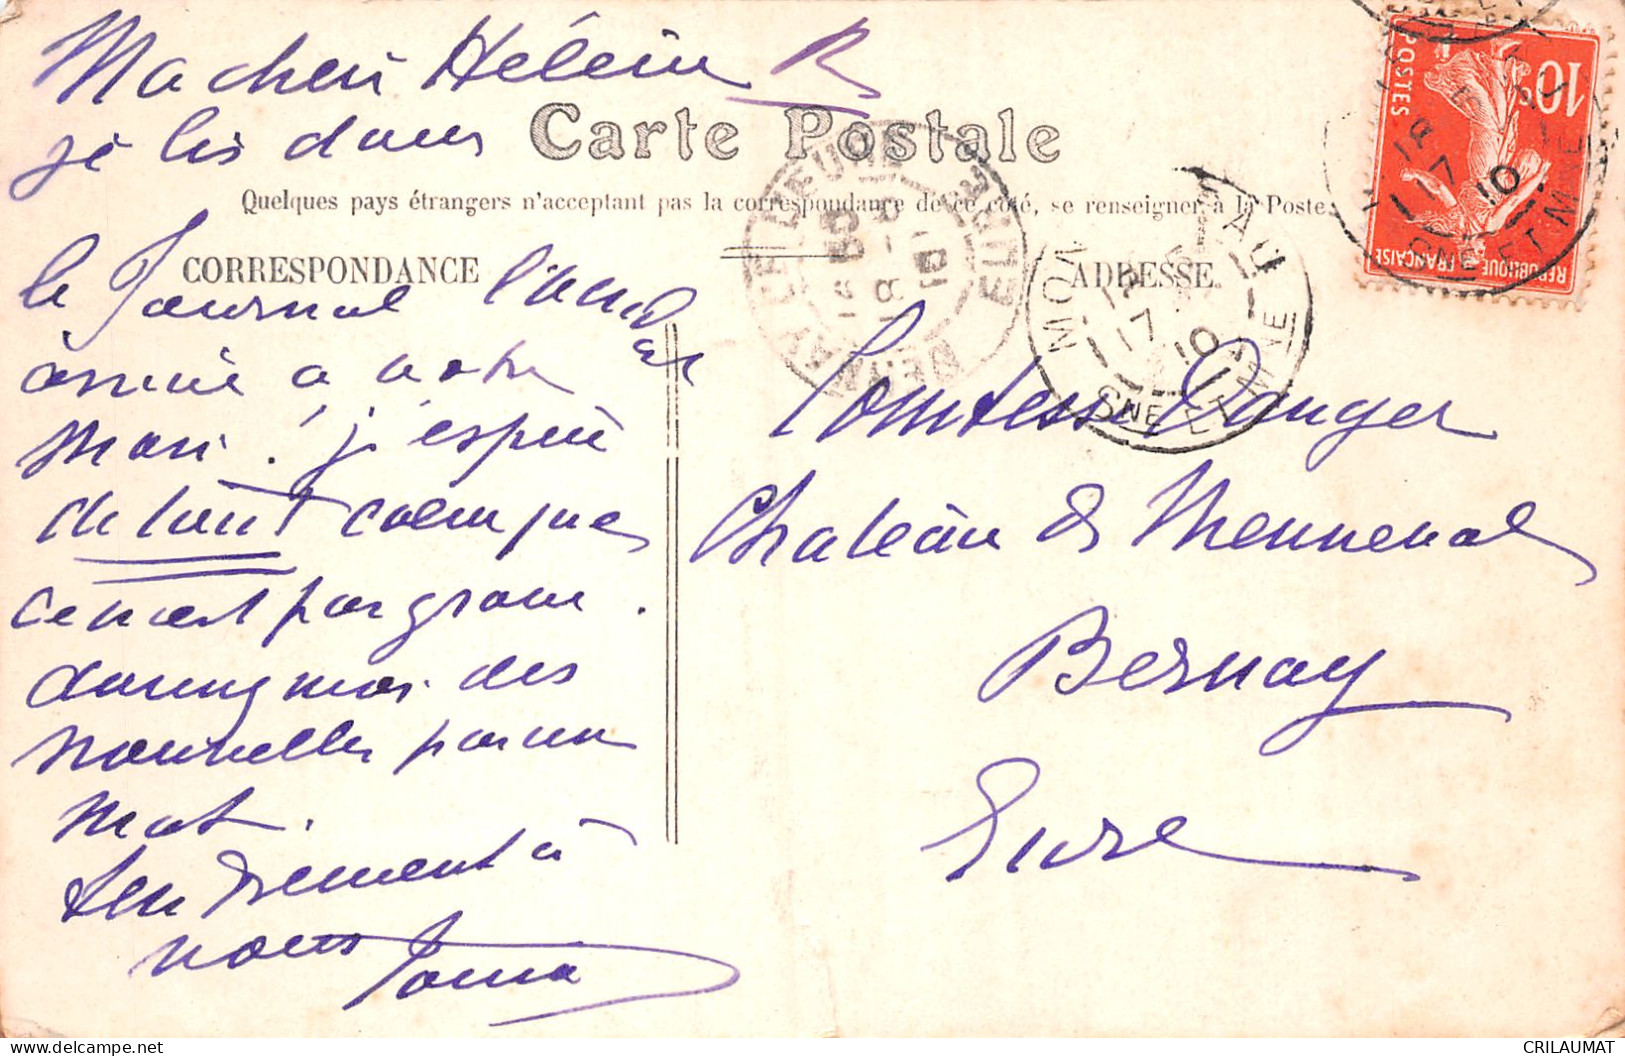 Ma cheri Hélène R
je lis dans
Carte Postale
Quelques pays étrangers n'acceptent pas la correspondance de ce côté, se renseigner à la Poste
CORRESPONDANCE
ADRESSE.
le Journal l'accident
arrivé a votre
mari ! j'espère
de tout coeur que
ce n'est pas grave.
donnez moi des
nouvelles par un
mot.
tendrement à
vous
Comtesse Danger
Château de Menneval
Bernay
Eure
10c
POSTES
REPUBLIQUE FRANÇAISE
17
10
SNE ET MNE
MO
17
10
SNE ET MNE
BERNAY
EURE
delcampe.net
CRILAUMAT